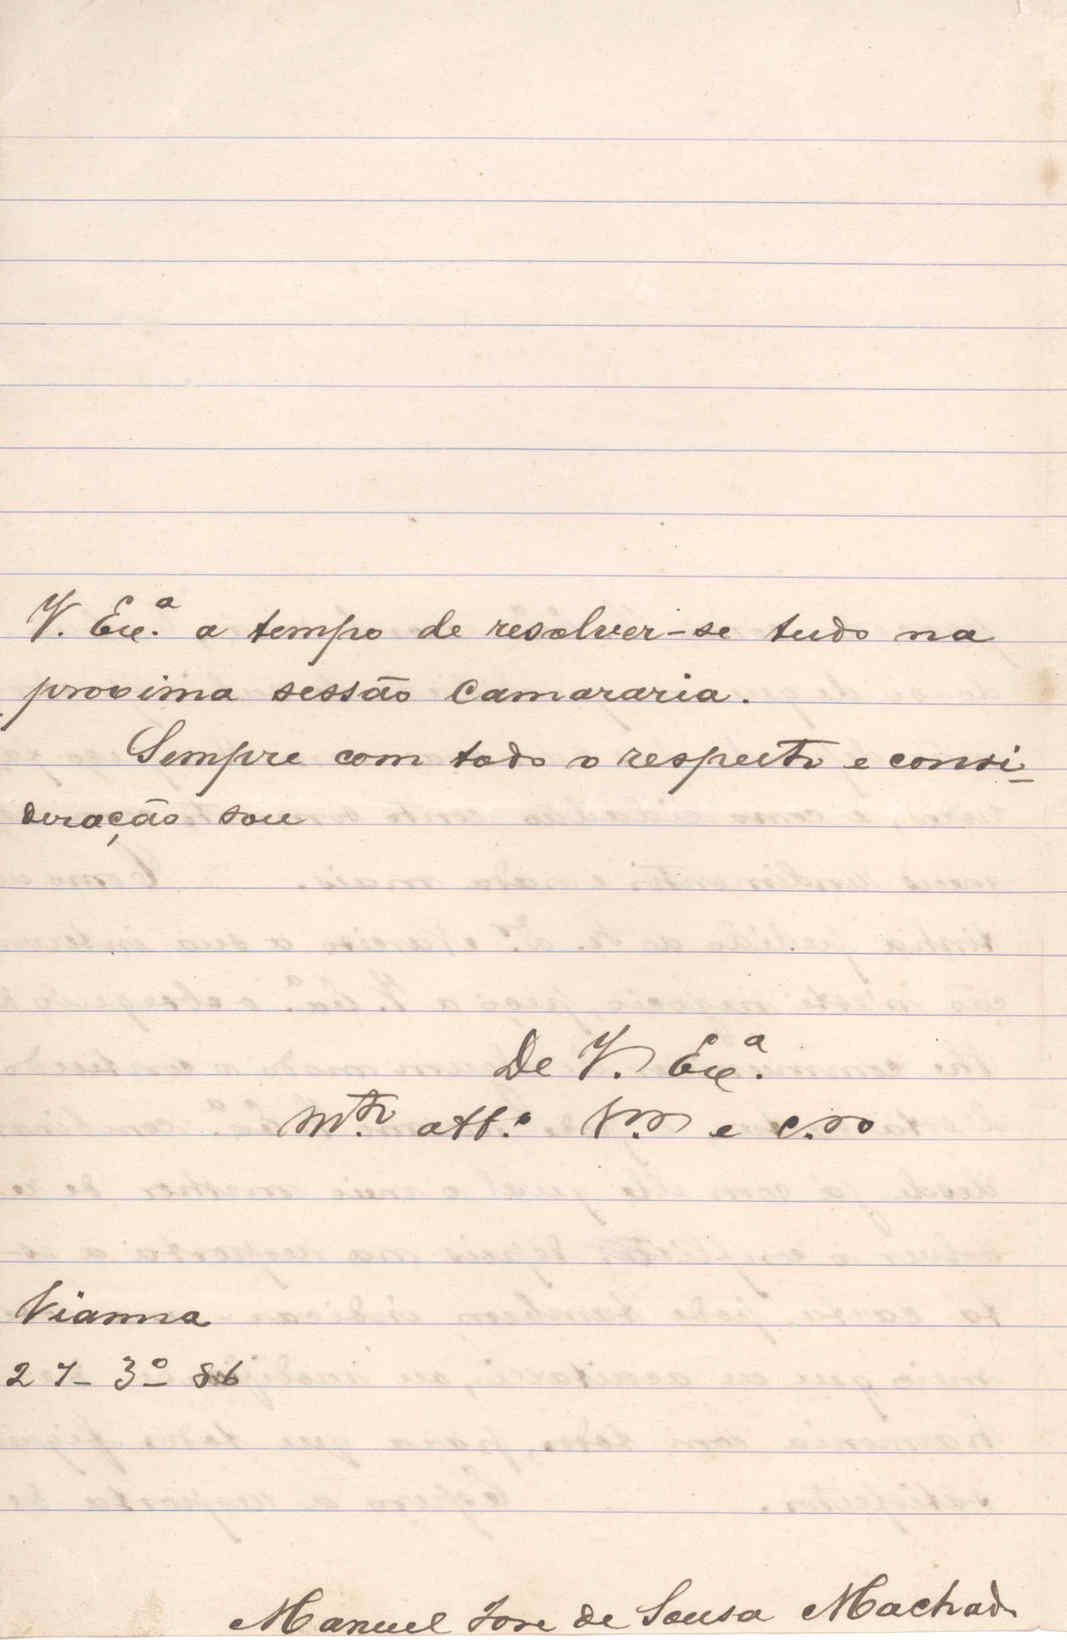 V. Ex.ª a tempo de resolver-se tudo na
proxima sessão Camararia.
Sempre com todo o respeito e consi-
deração sou
De V. Ex.ª
M.to att.º V.or e C.do
Vianna
27-3º-86
Manuel Jose de Sousa Machado